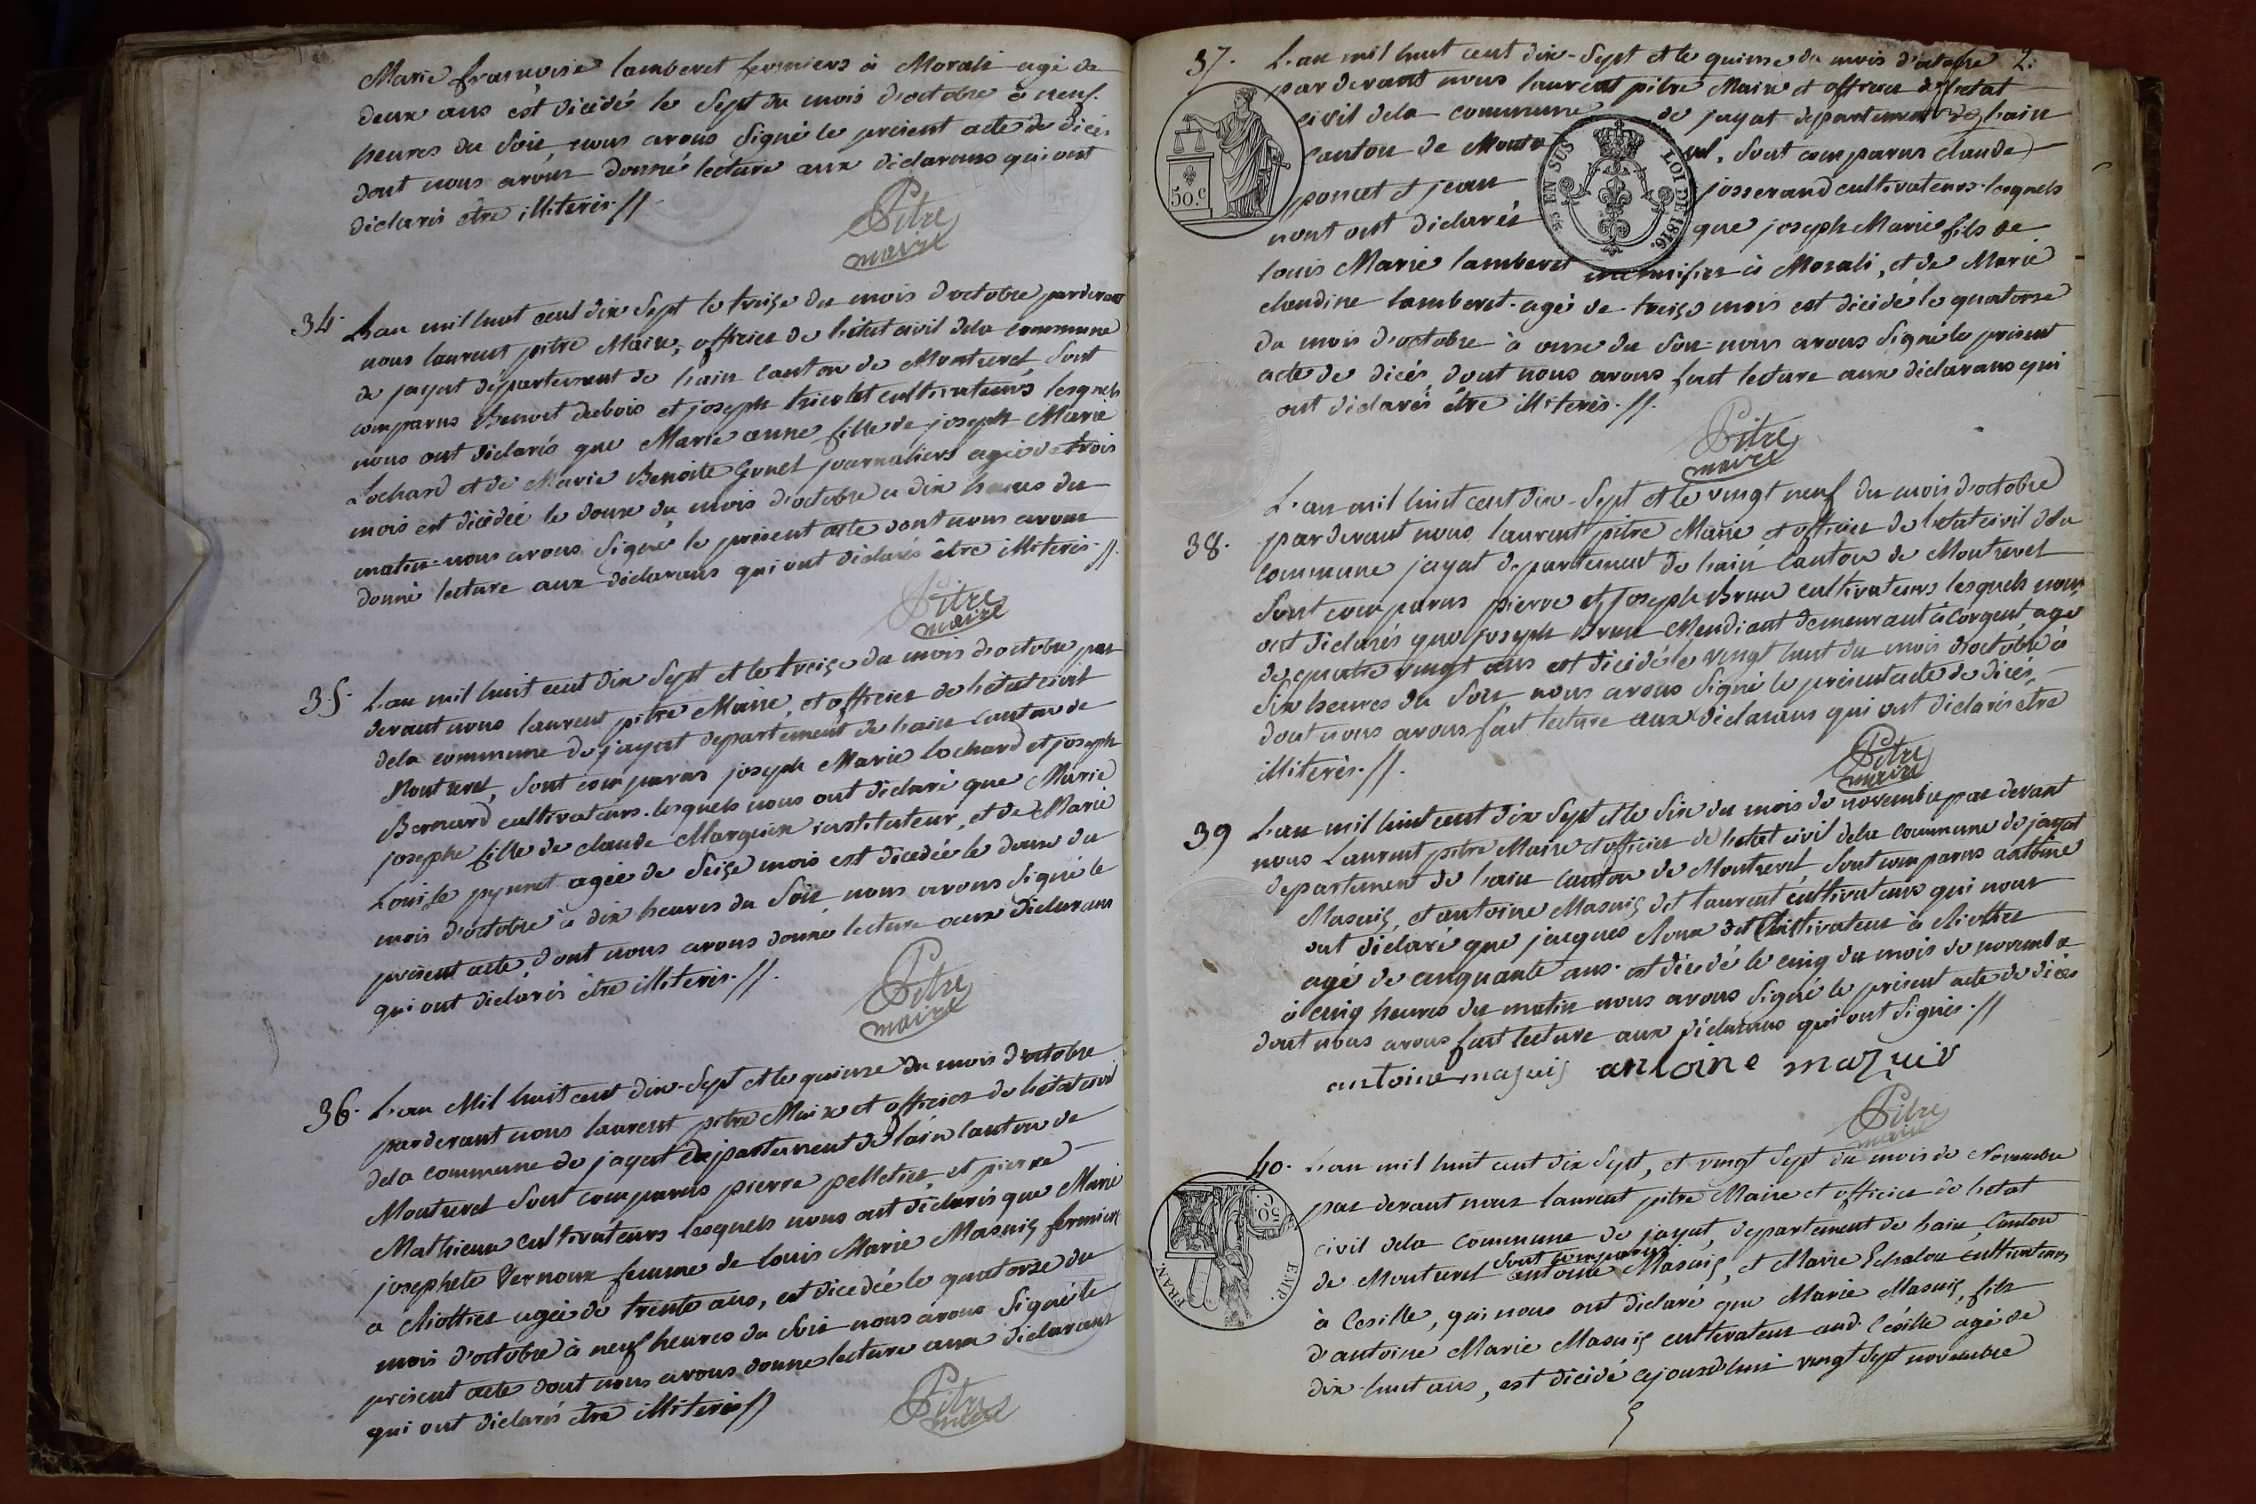 Marie françoise lamberet fermiers à Morali agé de
deux ans est dicédé le Sept du mois d'octobre à neuf
heures du Soir, nous avons Signé le présent acte de dicés
dont nous avons donné lecture aux diclarans qui ont
diclarés être illiterés.//.
Pitre
maire
34. L'an mil huit cent dix Sept le treize du mois d'octobre pardevant
nous laurent pitre Maire, officier de l'état civil dela commune
de jayat département de lain canton de Montrevel Sont
comparus Benoit dubois et joseph tricolet cultivateurs lesquels
nous ont diclarés que Marie anne fille de joseph Marie
Lochard et de Marie Benoite Gonet journaliers agée de trois
mois est dicédée le douze du mois d'octobre a dix heures du
matin nous avons Signé le présent acte dont nous avons
donné lecture aux diclarans qui ont diclarés être illiterés.//.
Pitre
maire
35. L'an mil huit cent dix Sept et le treize du mois d'octobre par
devant nous laurent pitre Maire, et officier de l'état civil
dela commune de jayat departement de lain canton de
Montrevel, Sont comparus joseph Marie lochard et joseph
Bernard cultivateurs lesquels nous ont diclaré que Marie
josephe fille de claude Marguin instituteur, et de Marie
Louise pyonet agée de Seize mois est dicedée le douze du
mois d'octobre à dix heures du Soir nous avons Signé le
présent acte, dont nous avons donné lecture aux diclarans
qui ont diclarés être illiterés.//.
Pitre
maire
36. L'an Mil huit cent dix-Sept et le quinze du mois d'octobre
pardevant nous laurent pitre Maire et officier de l'état civil
dela commune de jayat département de lain canton de
Montrevel Sont comparus pierre pelletier et pierre
Mathieux cultivateurs lesquels nous ont diclarés que Marie
josephete Vernoux femme de louis Marie Masuiz fermiers
a Chiottier agée de trente ans, est dicedée le quatorze du
mois d'octobre à neuf heures du Soir nous avons Signé le
présent acte dont nous avons donné lecture aux diclarans
qui ont diclarés être illiterés //
Pitre
maire
2.
37. L'an mil huit cent dix-Sept et le quinze du mois d'octobre
pardevant nous laurent pitre Maire et officier de l'etat
civil dela commune de jayat departement de lain
canton de Montrevel, Sont comparus claude
poncet et jean josserand cultivateurs lesquels
nont ont diclarés que joseph Marie fils de
louis Marie lamberet à Morali, et de Marie
claudine lamberet agé de treize mois est dicédé le quatorze
du mois d'octobre à onze du Soir nous avons Signé le présent
acte de dicés, dont nous avons fait lecture aux diclarans qui
ont diclarés être illiterés.//.
50.c
EN SUS
LOI DE 1816.
Pitre
maire
38. L'an mil huit cent dix-Sept et le vingt neuf du mois d'octobre
pardevant nous laurent pitre Maire et officier de l'etat civil dela
commune jayat departement de lain canton de Montrevel
Sont comparus pierre et joseph Brun cultivateurs lesquels nous
ont diclarés que joseph Brun Mendiant demeurant à Corgent, agé
de quatre vingt ans est dicidé le vingt huit du mois d'octobre à
Six heures du Soir nous avons Signé le présent acte de dicés,
dont nous avons fait lecture aux diclarans qui ont diclarés être
illiterés.//.
Pitre
maire
39 L'an mil huit cent dix Sept et le Six du mois de novembre par devant
nous Laurent pitre Maire et officier de l'etat civil dela commune de jayat
departement de lain canton de Montrevel, Sont comparus antoine
Masuiz, et antoine Masuiz dit laurent cultivateurs qui nous
ont diclaré que jacques Roux dit Cultivateur à Chiottier
agé de cinquante ans est dicédé le cinq du mois de novembre
à cinq heures du matin nous avons Signé le présent acte de dicés
dont nous avons fait lecture aux diclarans qui ont Signés.//
antoine masuis antoine mazuiv
Pitre
maire
40. L'an mil huit cent dix Sept, et vingt Sept du mois de Novembre
par devant nous laurent pitre Maire et officier de l'etat
civil dela commune de jayat, departement de lain, Canton
sont comparus
de Montrevel antoine Masuiz, et Marie Echalon cultivateurs
à Cesille, qui nous ont diclaré que Marie Masuiz, fils
d'antoine Marie Masuiz cultivateur aud. Césille agé de
dix-huit ans, est dicidé cejourd'hui vingt Sept novembre
50.C.
EMP.
FRAN.